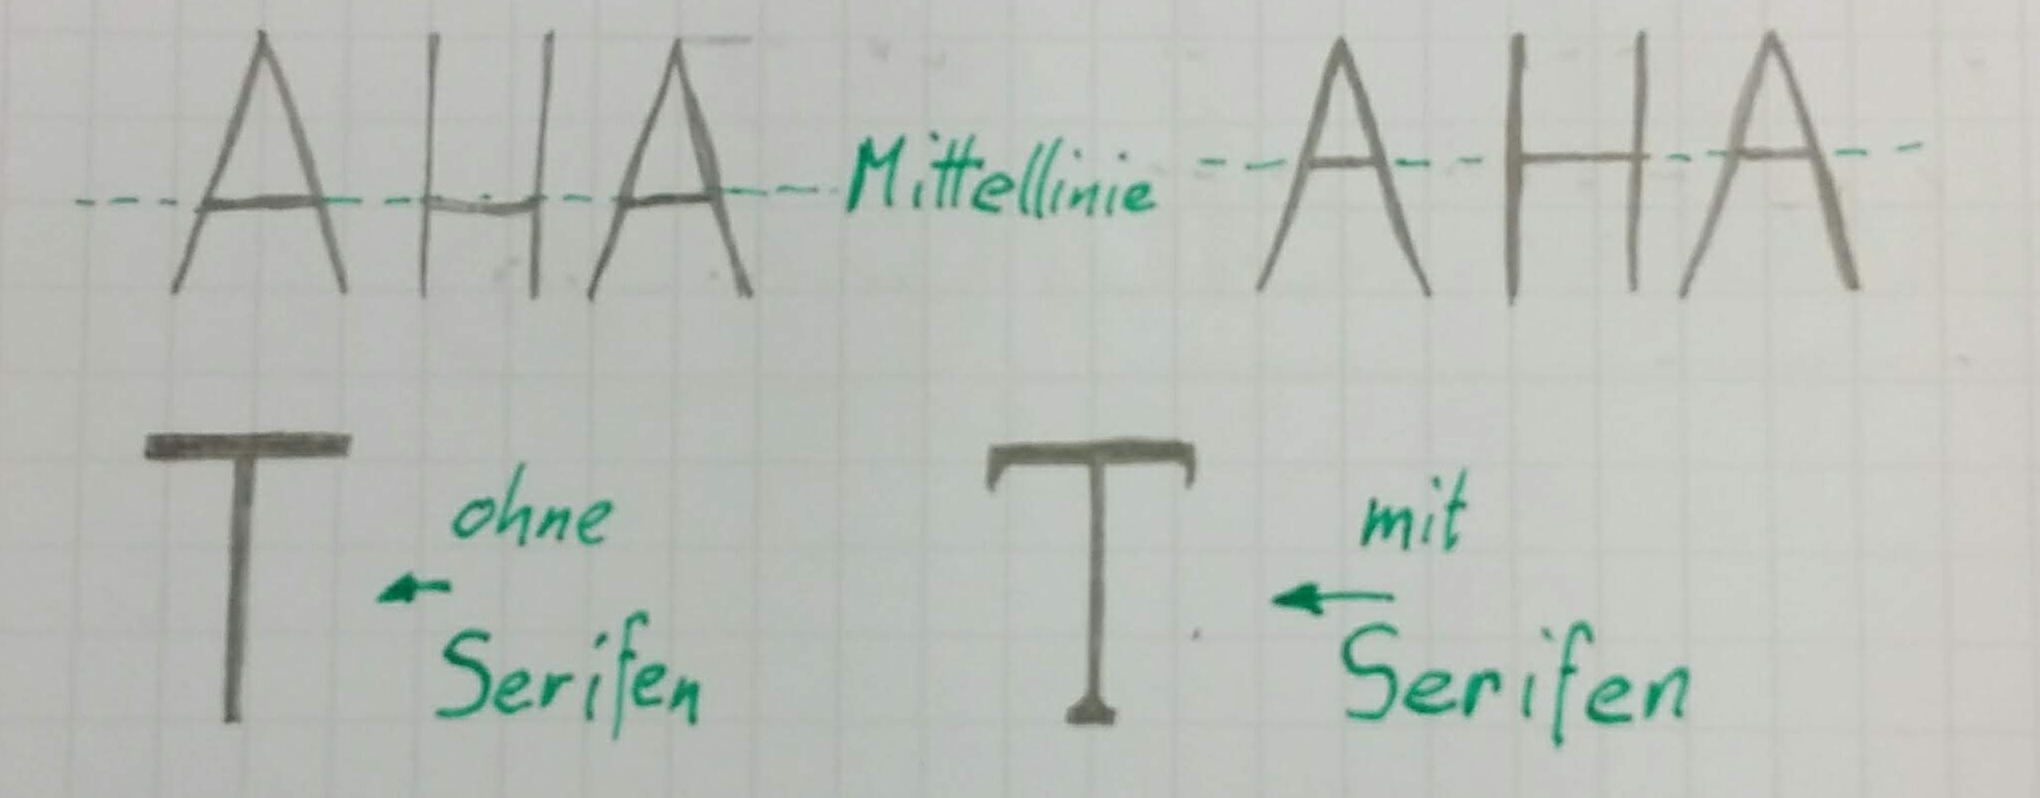 AHA Mittellinie AHA
T ohne Serifen
T mit Serifen